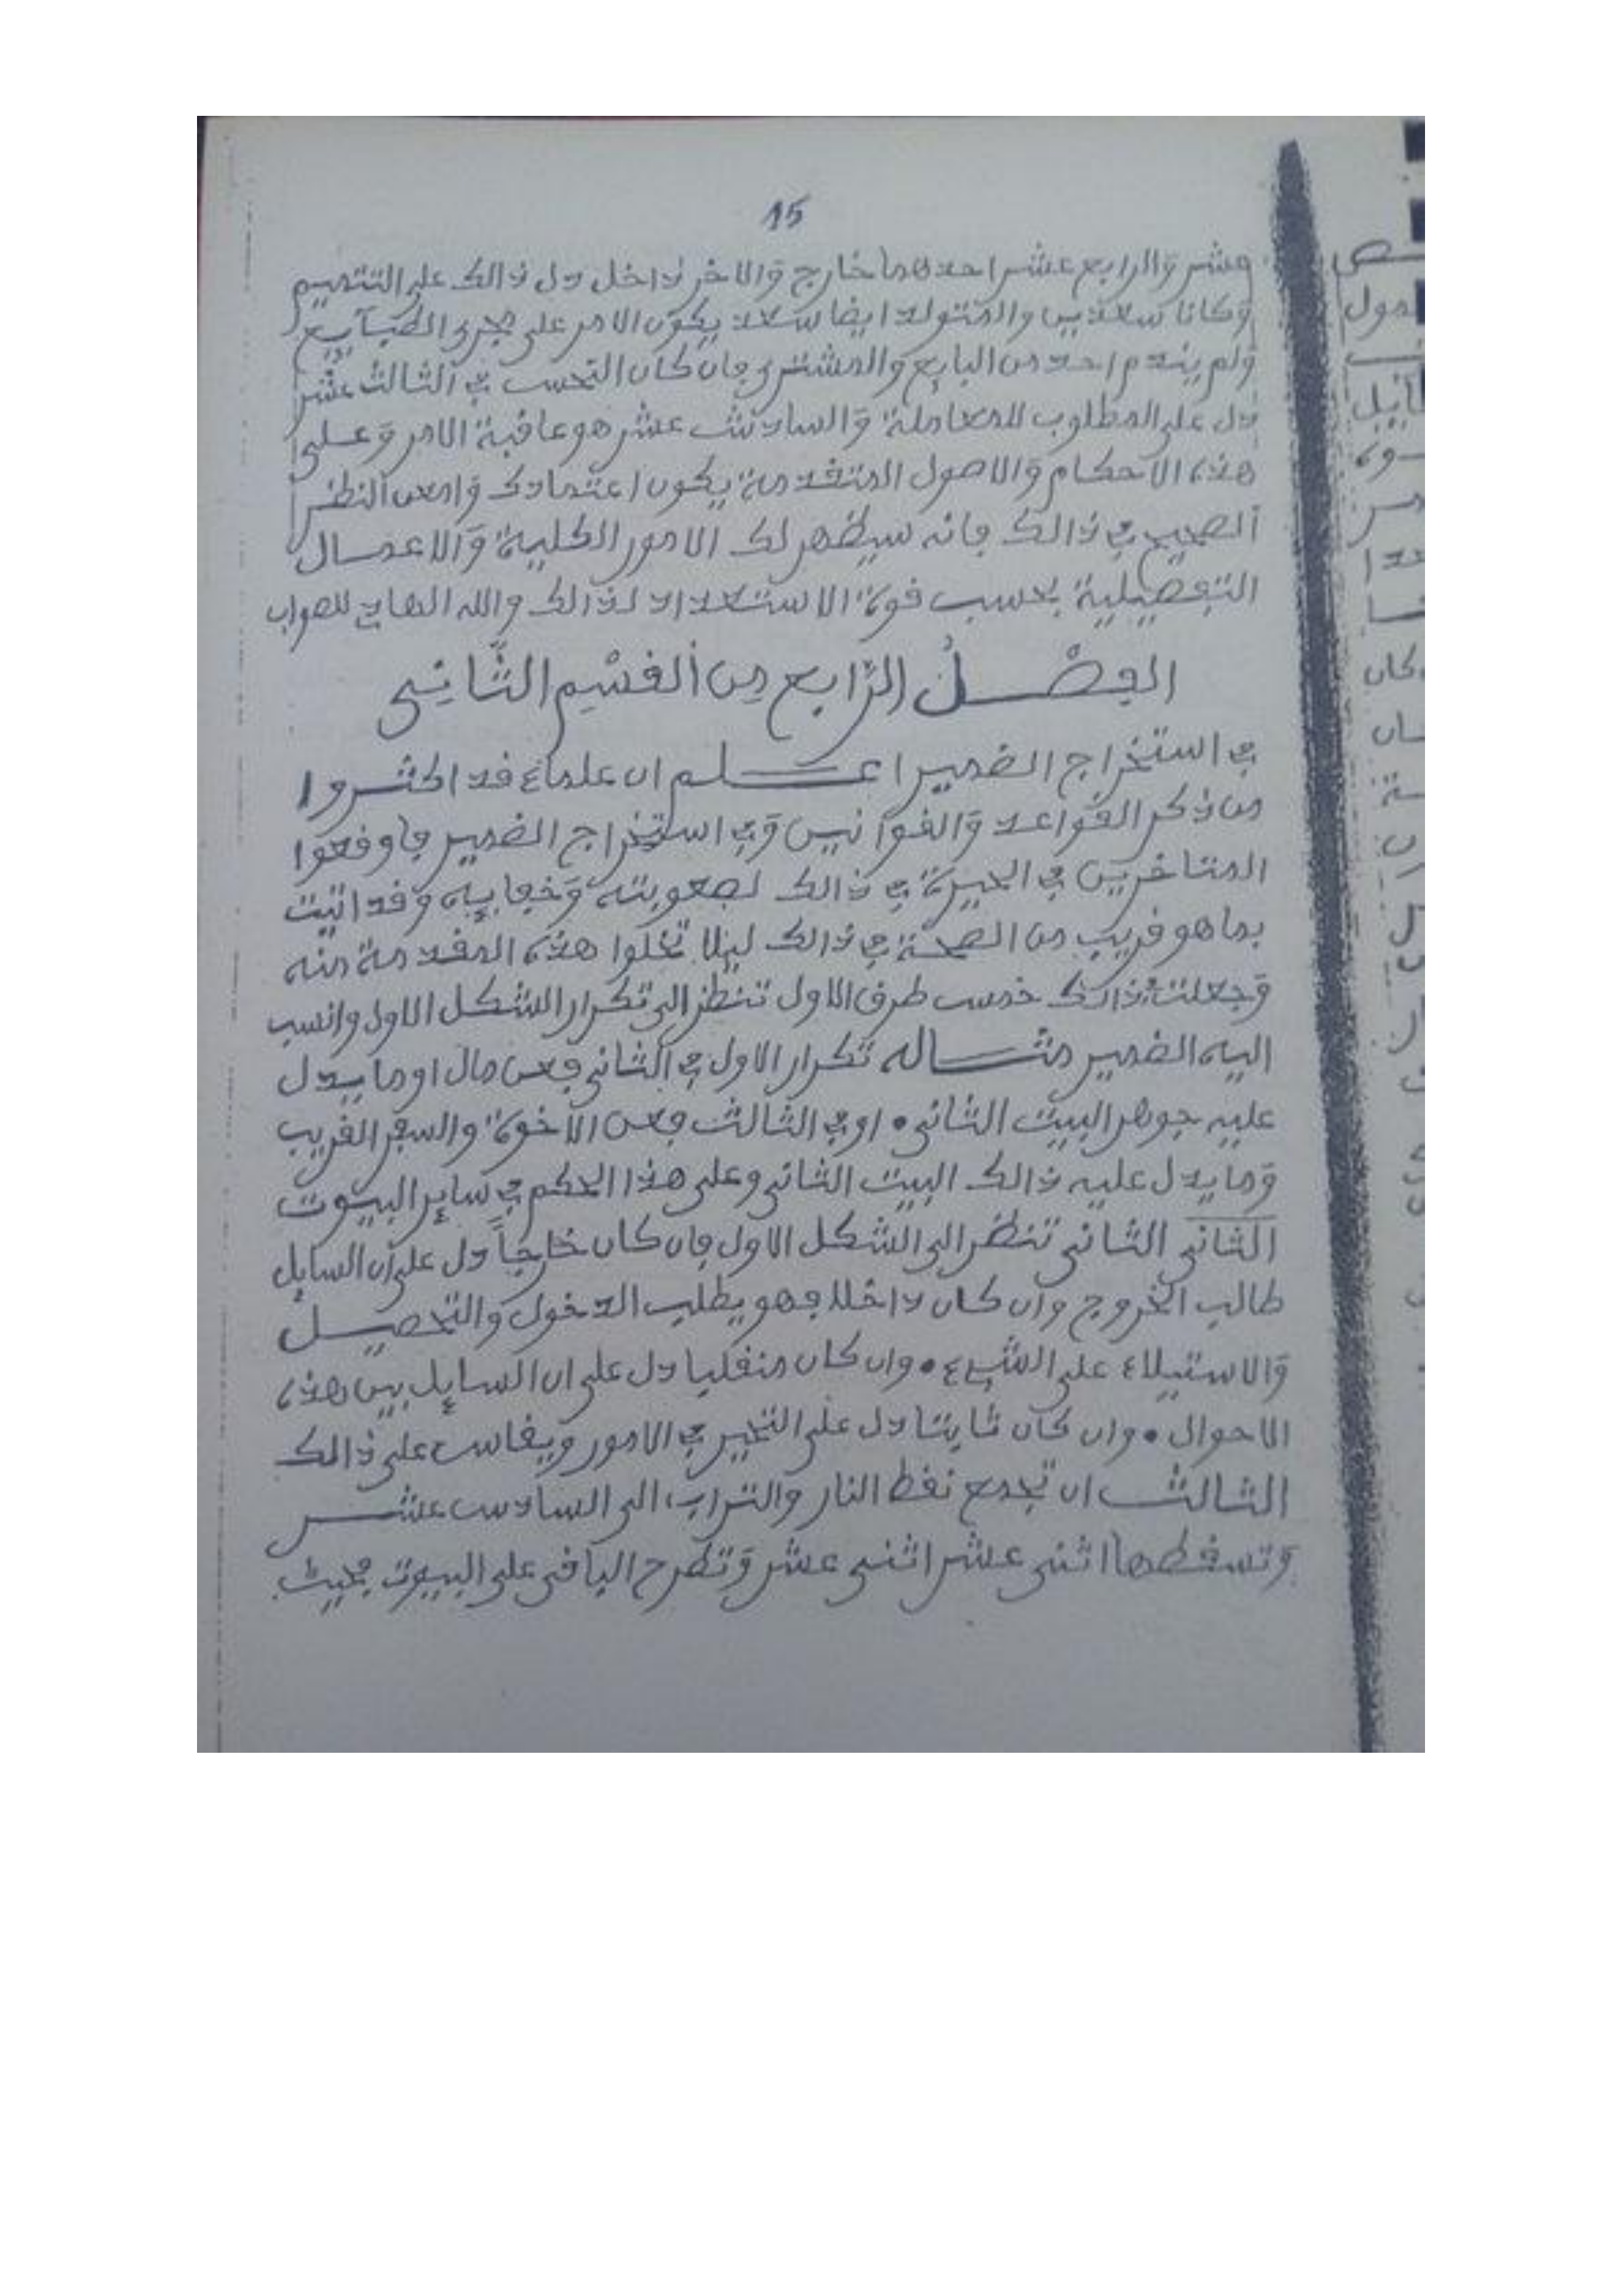 15
عشر والرابع عشر احدهما خارج والاخر داخل دل ذالك على التتميم
وكانا سعدين والمتولد ايضا سعد يكون الامر على مجرى الطبآيع
ولم يندم احد من البايع والمشترى فان كان النحس في الثالث عشر
دل على المطلوب للمعاملة والسادس عشر هو عاقبة الامر وعلى
هذه الاحكام والاصول المتقدمة يكون اعتمادك وامعن النظر
الصحيح في ذالك فانه سيظهر لك الامور الكلية والاعمال
التفصيلية بحسب قوة الاستعداد لذالك والله الهادي للصواب
الفصل الرابع من القسم الثاني
في استخراج الضمير اعلم ان علماء قد اكثروا
من ذكر القواعد والقوانين وفي استخراج الضمير فاوقعوا
المتاخرين في الحيرة في ذالك لصعوبته وخفاييه وقد اتيت
بما هو قريب من الصحة في ذالك ليلا تخلوا هذه المقدمة منه
وجعلت ذالك خمس طرق الاول تنظر الى تكرار الشكل الاول وانسب
اليه الضمير مثاله تكرار الاول في الثاني فعن مال او ما يدل
عليه جوهر البيت الثاني • او في الثالث فعن الاخوة والسفر القريب
وما يدل عليه ذالك البيت الثاني وعلى هذا الحكم في ساير البيوت
الثاني الثاني تنظر الى الشكل الاول فان كان خارجاً دل على ان السايل
طالب الخروج وان كان داخلا فهو يطلب الدخول والتحصيل
والاستيلاء على الشيء • وان كان منقلبا دل على ان السايل بين هذه
الاحوال • وان كان ثابتا دل على التحير في الامور ويقاس على ذالك
الثالث ان تجمع نقط النار والتراب الى السادس عشر
وتسقطها اثنى عشر اثنى عشر وتطرح الباقى على البيوت بحيث